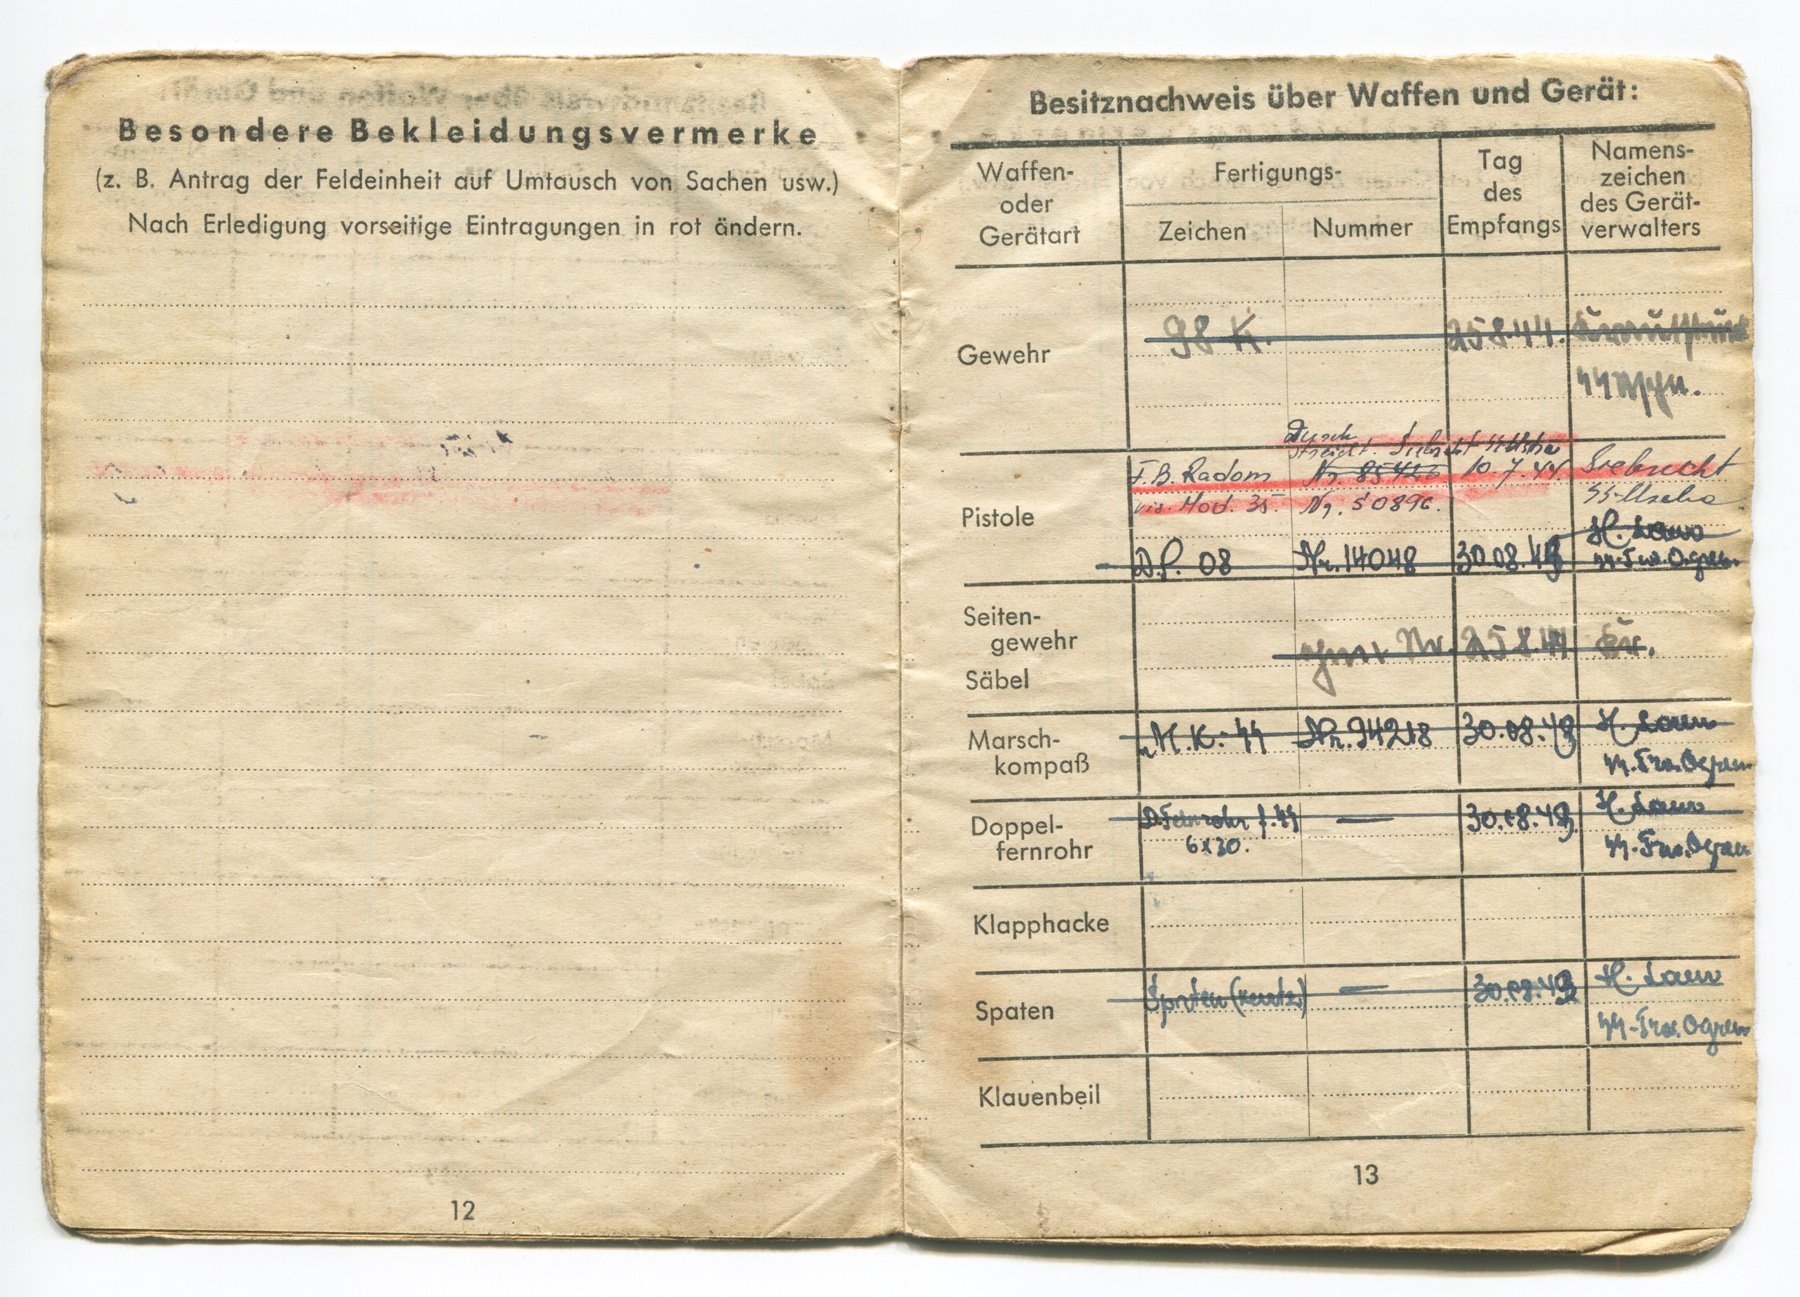 Besondere Bekleidungsvermerke
(z. B. Antrag der Feldeinheit auf Umtausch von Sachen usw.)
Nach Erledigung vorseitige Eintragungen in rot ändern.
12
Besitznachweis über Waffen und Gerät:
Waffen- oder Gerätart
Fertigungs-
Zeichen
Nummer
Tag des Empfangs
Namens- zeichen des Gerät- verwalters
Gewehr
98 K.
25.8.44.
Pistole
F.B. Radom Nr. 85426 10.7.44.
vis. Mod. 35. Nr. S0896.
SS-Uscha
D.P. 08 Nr. 14048 30.08.43 H. Lauw
Seiten-
gewehr
Nr. 25.8.44
Säbel
Marsch-
kompaß
M.K.-SS Nr. 94218 30.08.43 H. Lauw
Doppel-
fernrohr
D.Fernrohr f. SS — 30.08.43 H. Lauw
6x30.
Klapphacke
Spaten
Spaten (kurtz) — 30.08.43 H. Lauw
Klauenbeil
13